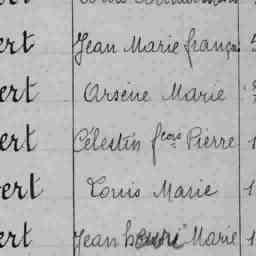 ert Jean Marie françois
ert Arsène Marie
ert Célestin fçois Pierre 1
ert Louis Marie 1
ert Jean Marie 1